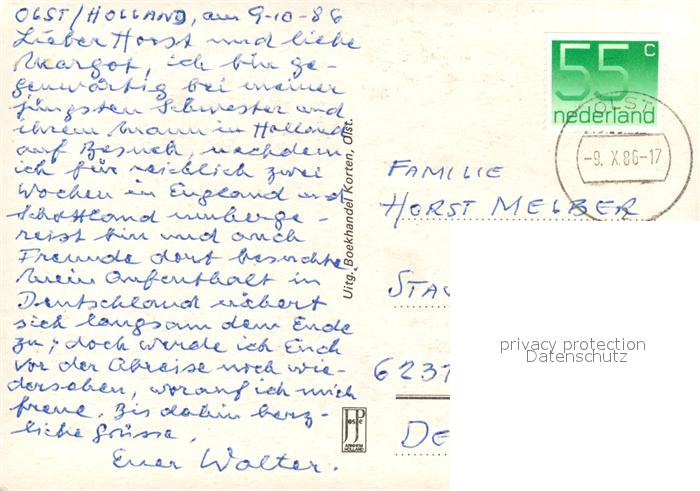 OLST/HOLLAND, am 9-10-86
Lieber Horst und liebe
Margot, ich bin ge-
genwärtig bei meiner
jüngsten Schwester und
ihrem Mann in Holland
auf Besuch, nachdem
ich für reichlich zwei
Wochen in England und
Schottland umherge-
reist bin und auch
Freunde dort besuchte.
Mein Aufenthalt in
Deutschland nähert
sich langsam dem Ende
zu; doch werde ich Euch
vor der Abreise noch wie-
dersehen, worauf ich mich
freue. Bis dahin herz-
liche Grüsse,
Euer Walter.
Uitg. Boekhandel Korten, Olst.
JosPé
ARNHEM
HOLLAND
55 c
nederland
OLST
-9. X.86-17
FAMILIE
HORST MELBER
STA
6237
DE
privacy protection
Datenschutz